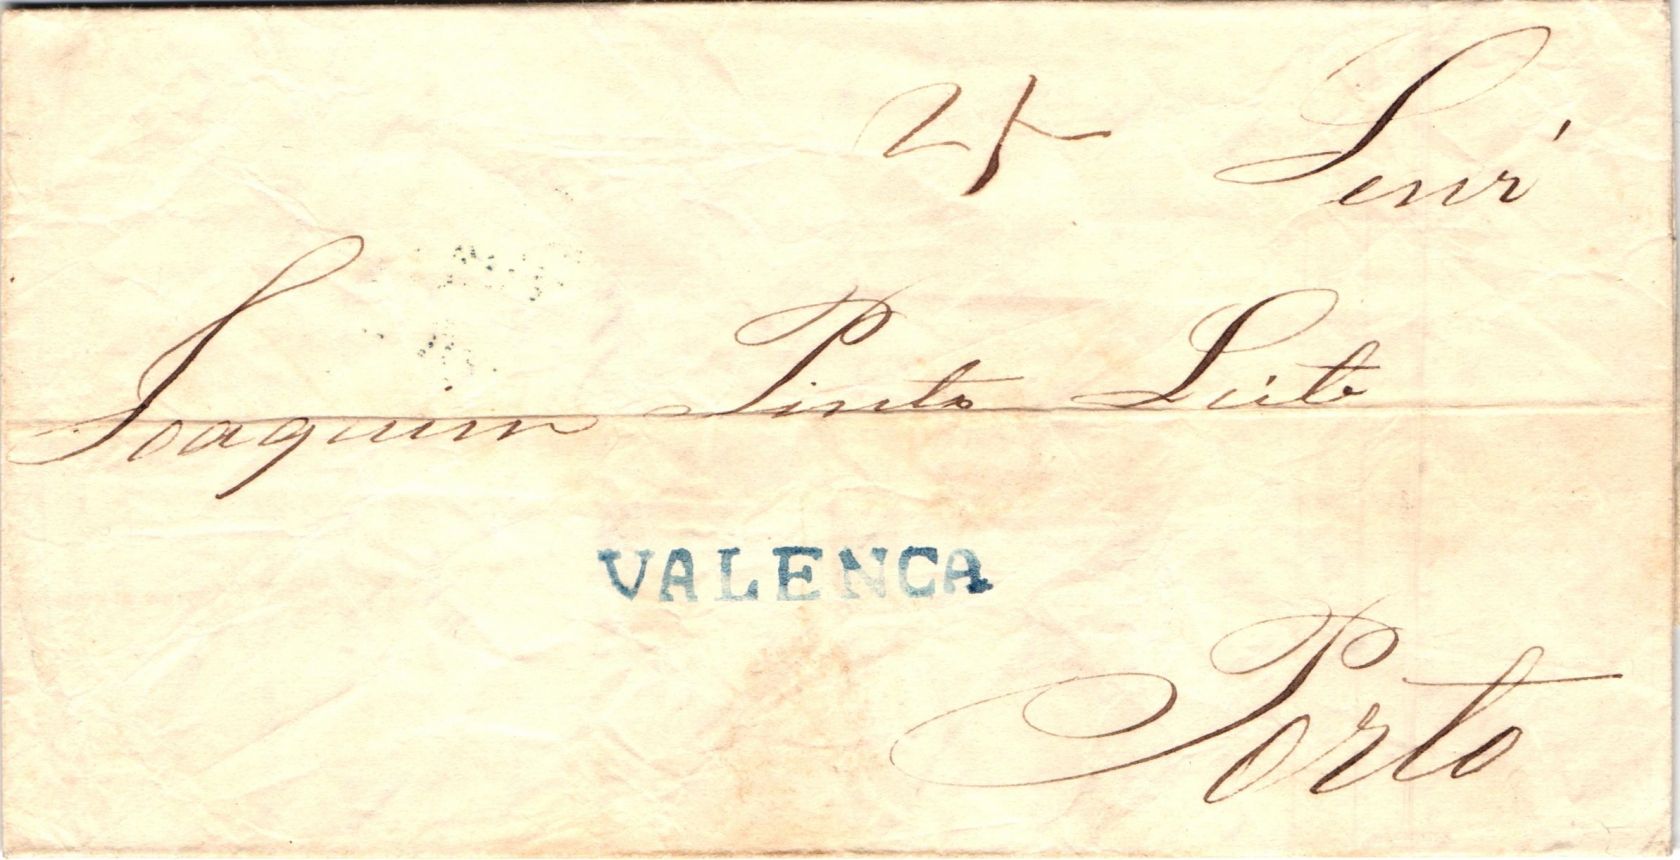 Senr
Joaquim Pinto Leite
VALENCA
Porto